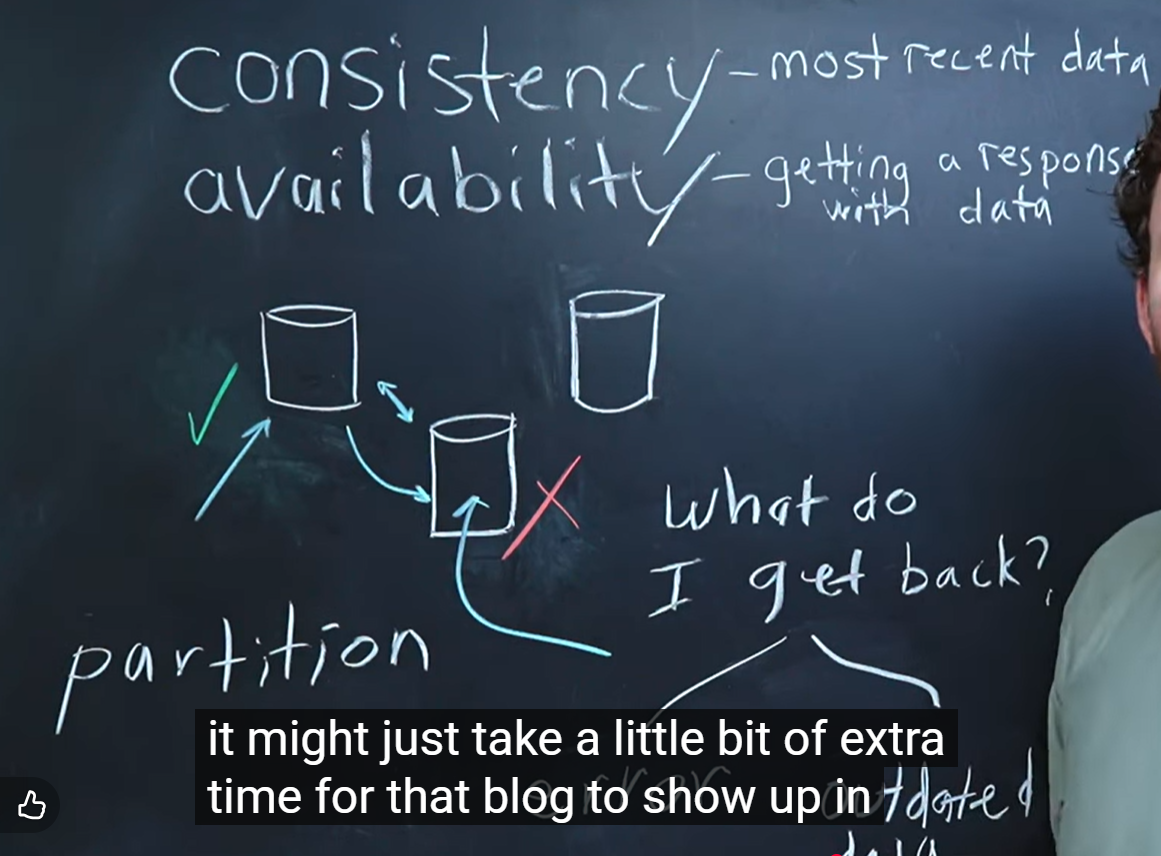 consistency - most recent data
availability - getting a response
with data
What do
I get back?
partition
error
outdated
data
it might just take a little bit of extra
time for that blog to show up in